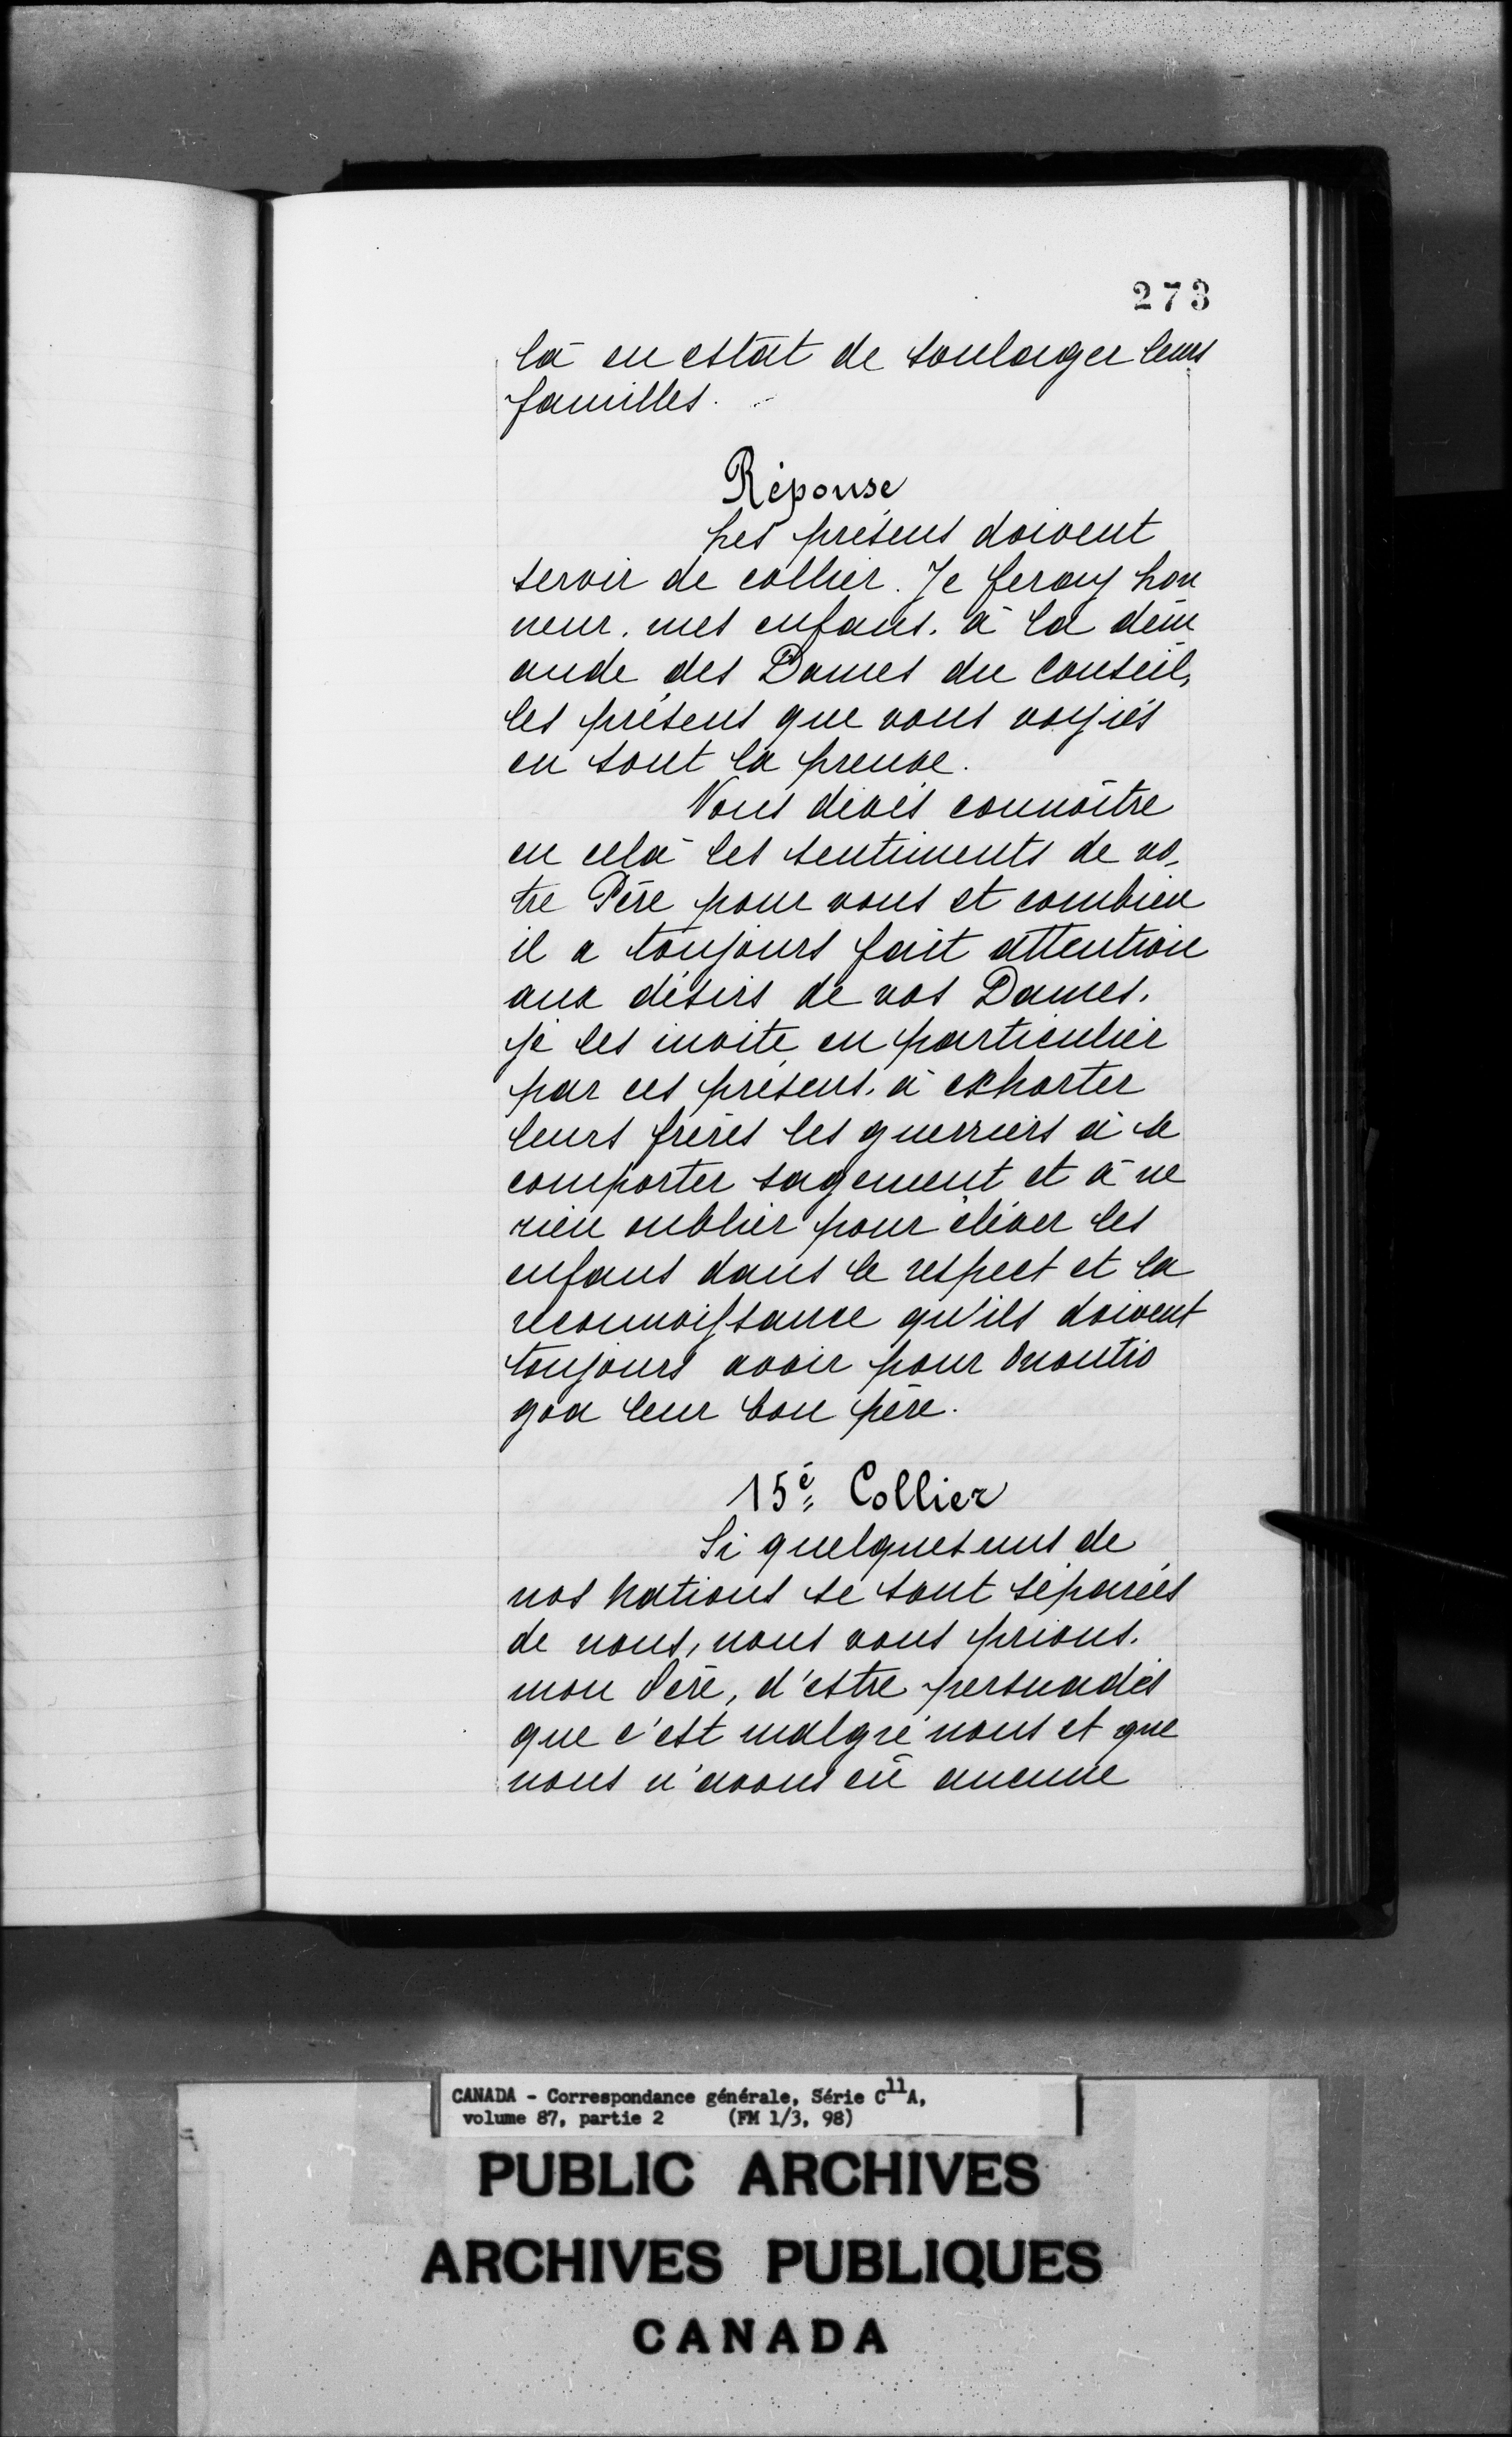 273
là en estat de soulager leurs
familles.
Réponse
Les présens doivent
servir de collier. Je feray hon
neur, mes enfans, à la dem
ande des Dames du Conseil,
les présens que vous voyiés
en sont la preuve.
Vous devés connoître
en celà les sentiments de vo-
tre Père pour vous et combien
il a toujours fait attention
aux désirs de vos Dames,
je les invite en particulier
par ces présens, à exhorter
leurs frères les guerriers à se
comporter sagement et à ne
rien oublier pour élever les
enfans dans le respect et la
reconnoissance qu'ils doivent
toujours avoir pour Onontio
goa leur bon père.
15è Collier
Si quelques uns de
nos Nations se sont séparées
de nous, nous vous prions,
mon Père, d'estre persuadés
que c'est malgré nous et que
nous n'avons eû aucune
CANADA - Correspondance générale, Série C11A,
volume 87, partie 2 (FM 1/3, 98)
PUBLIC ARCHIVES
ARCHIVES PUBLIQUES
CANADA